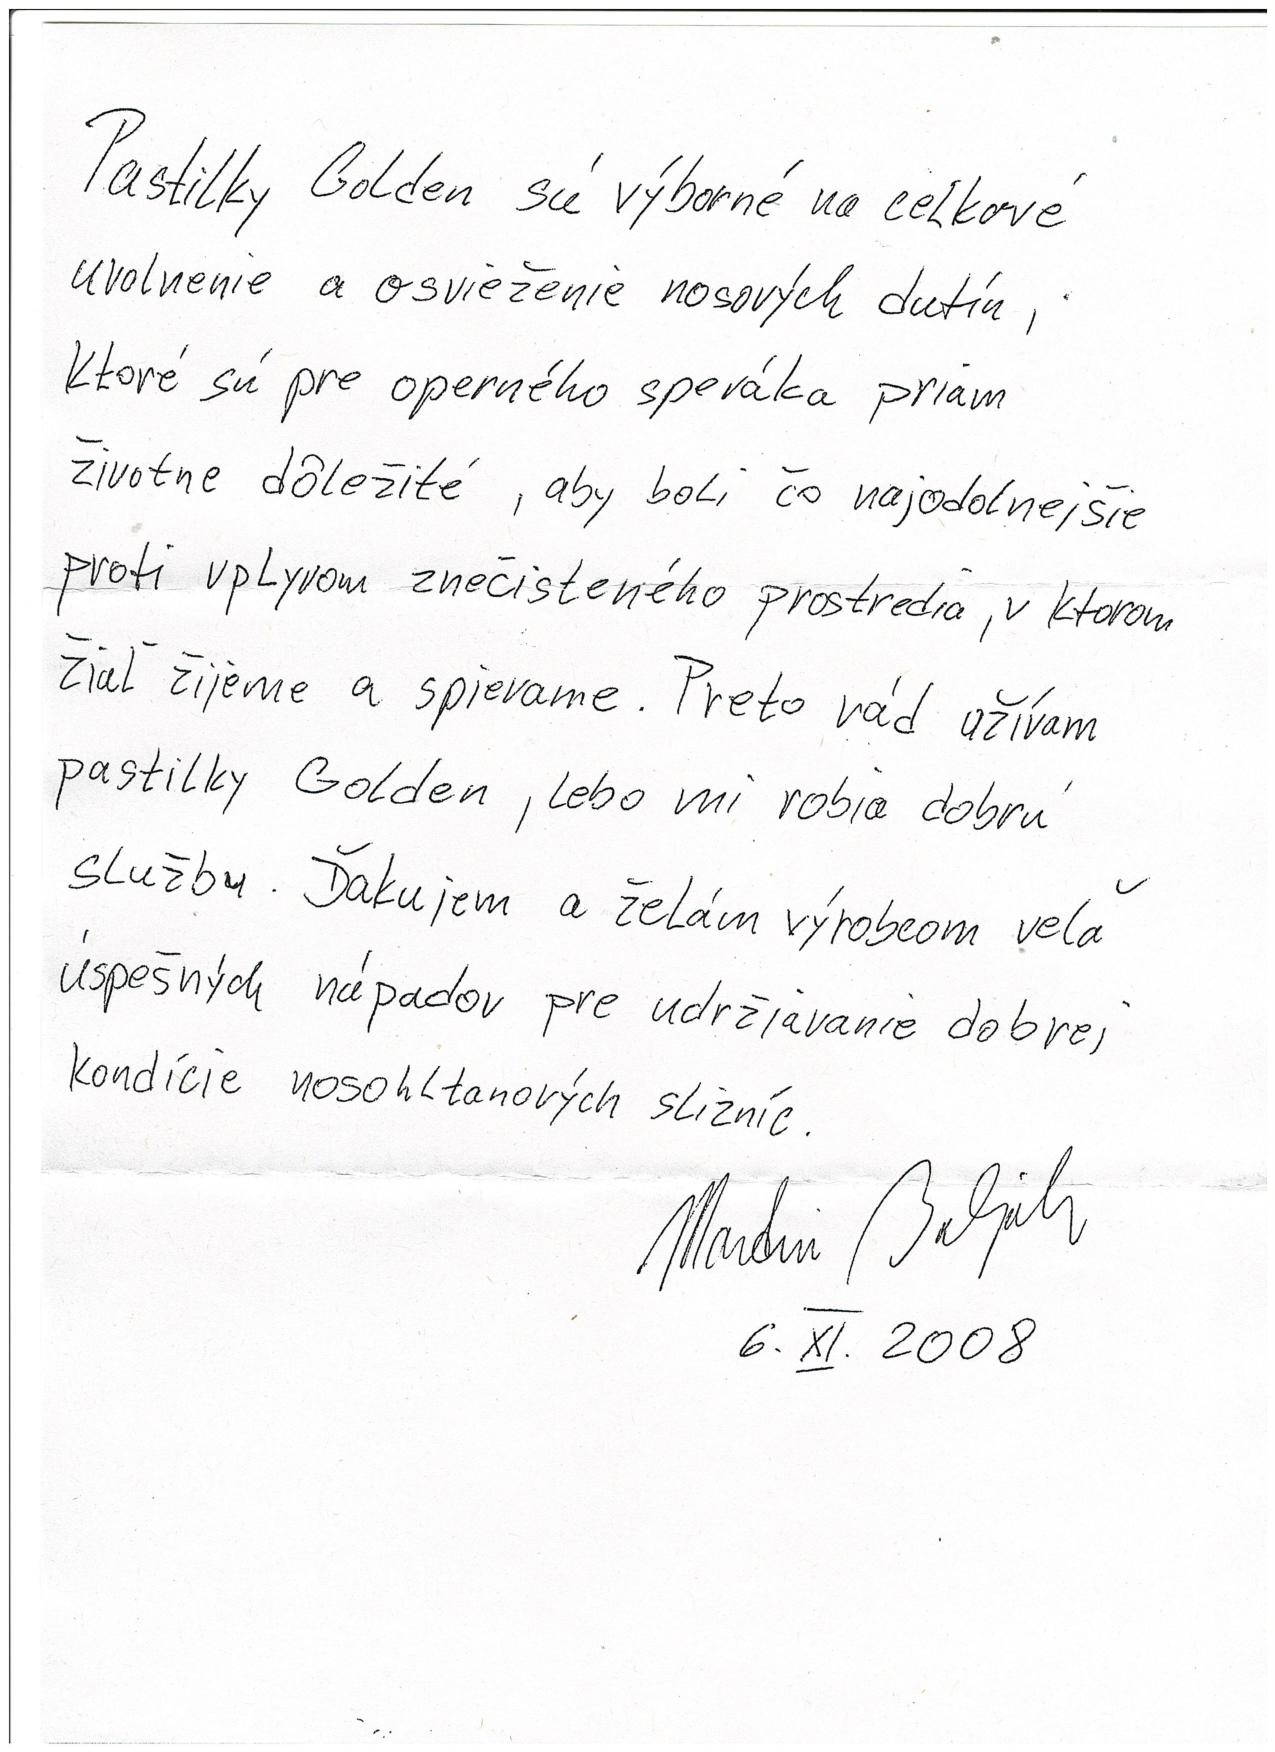 Pastilky Golden sú výborné na celkové
uvolnenie a osvieženie nosových dutín,
ktoré sú pre operného speváka priam
životne dôležité, aby boli čo najodolnejšie
proti vplyvom znečisteného prostredia, v ktorom
žiaľ žijeme a spievame. Preto rád užívam
pastilky Golden, lebo mi robia dobrú
službu. Ďakujem a želám výrobcom veľa
úspešných nápadov pre udržiavanie dobrej
kondície nosohltanových slizníc.
Martin
6. XI. 2008